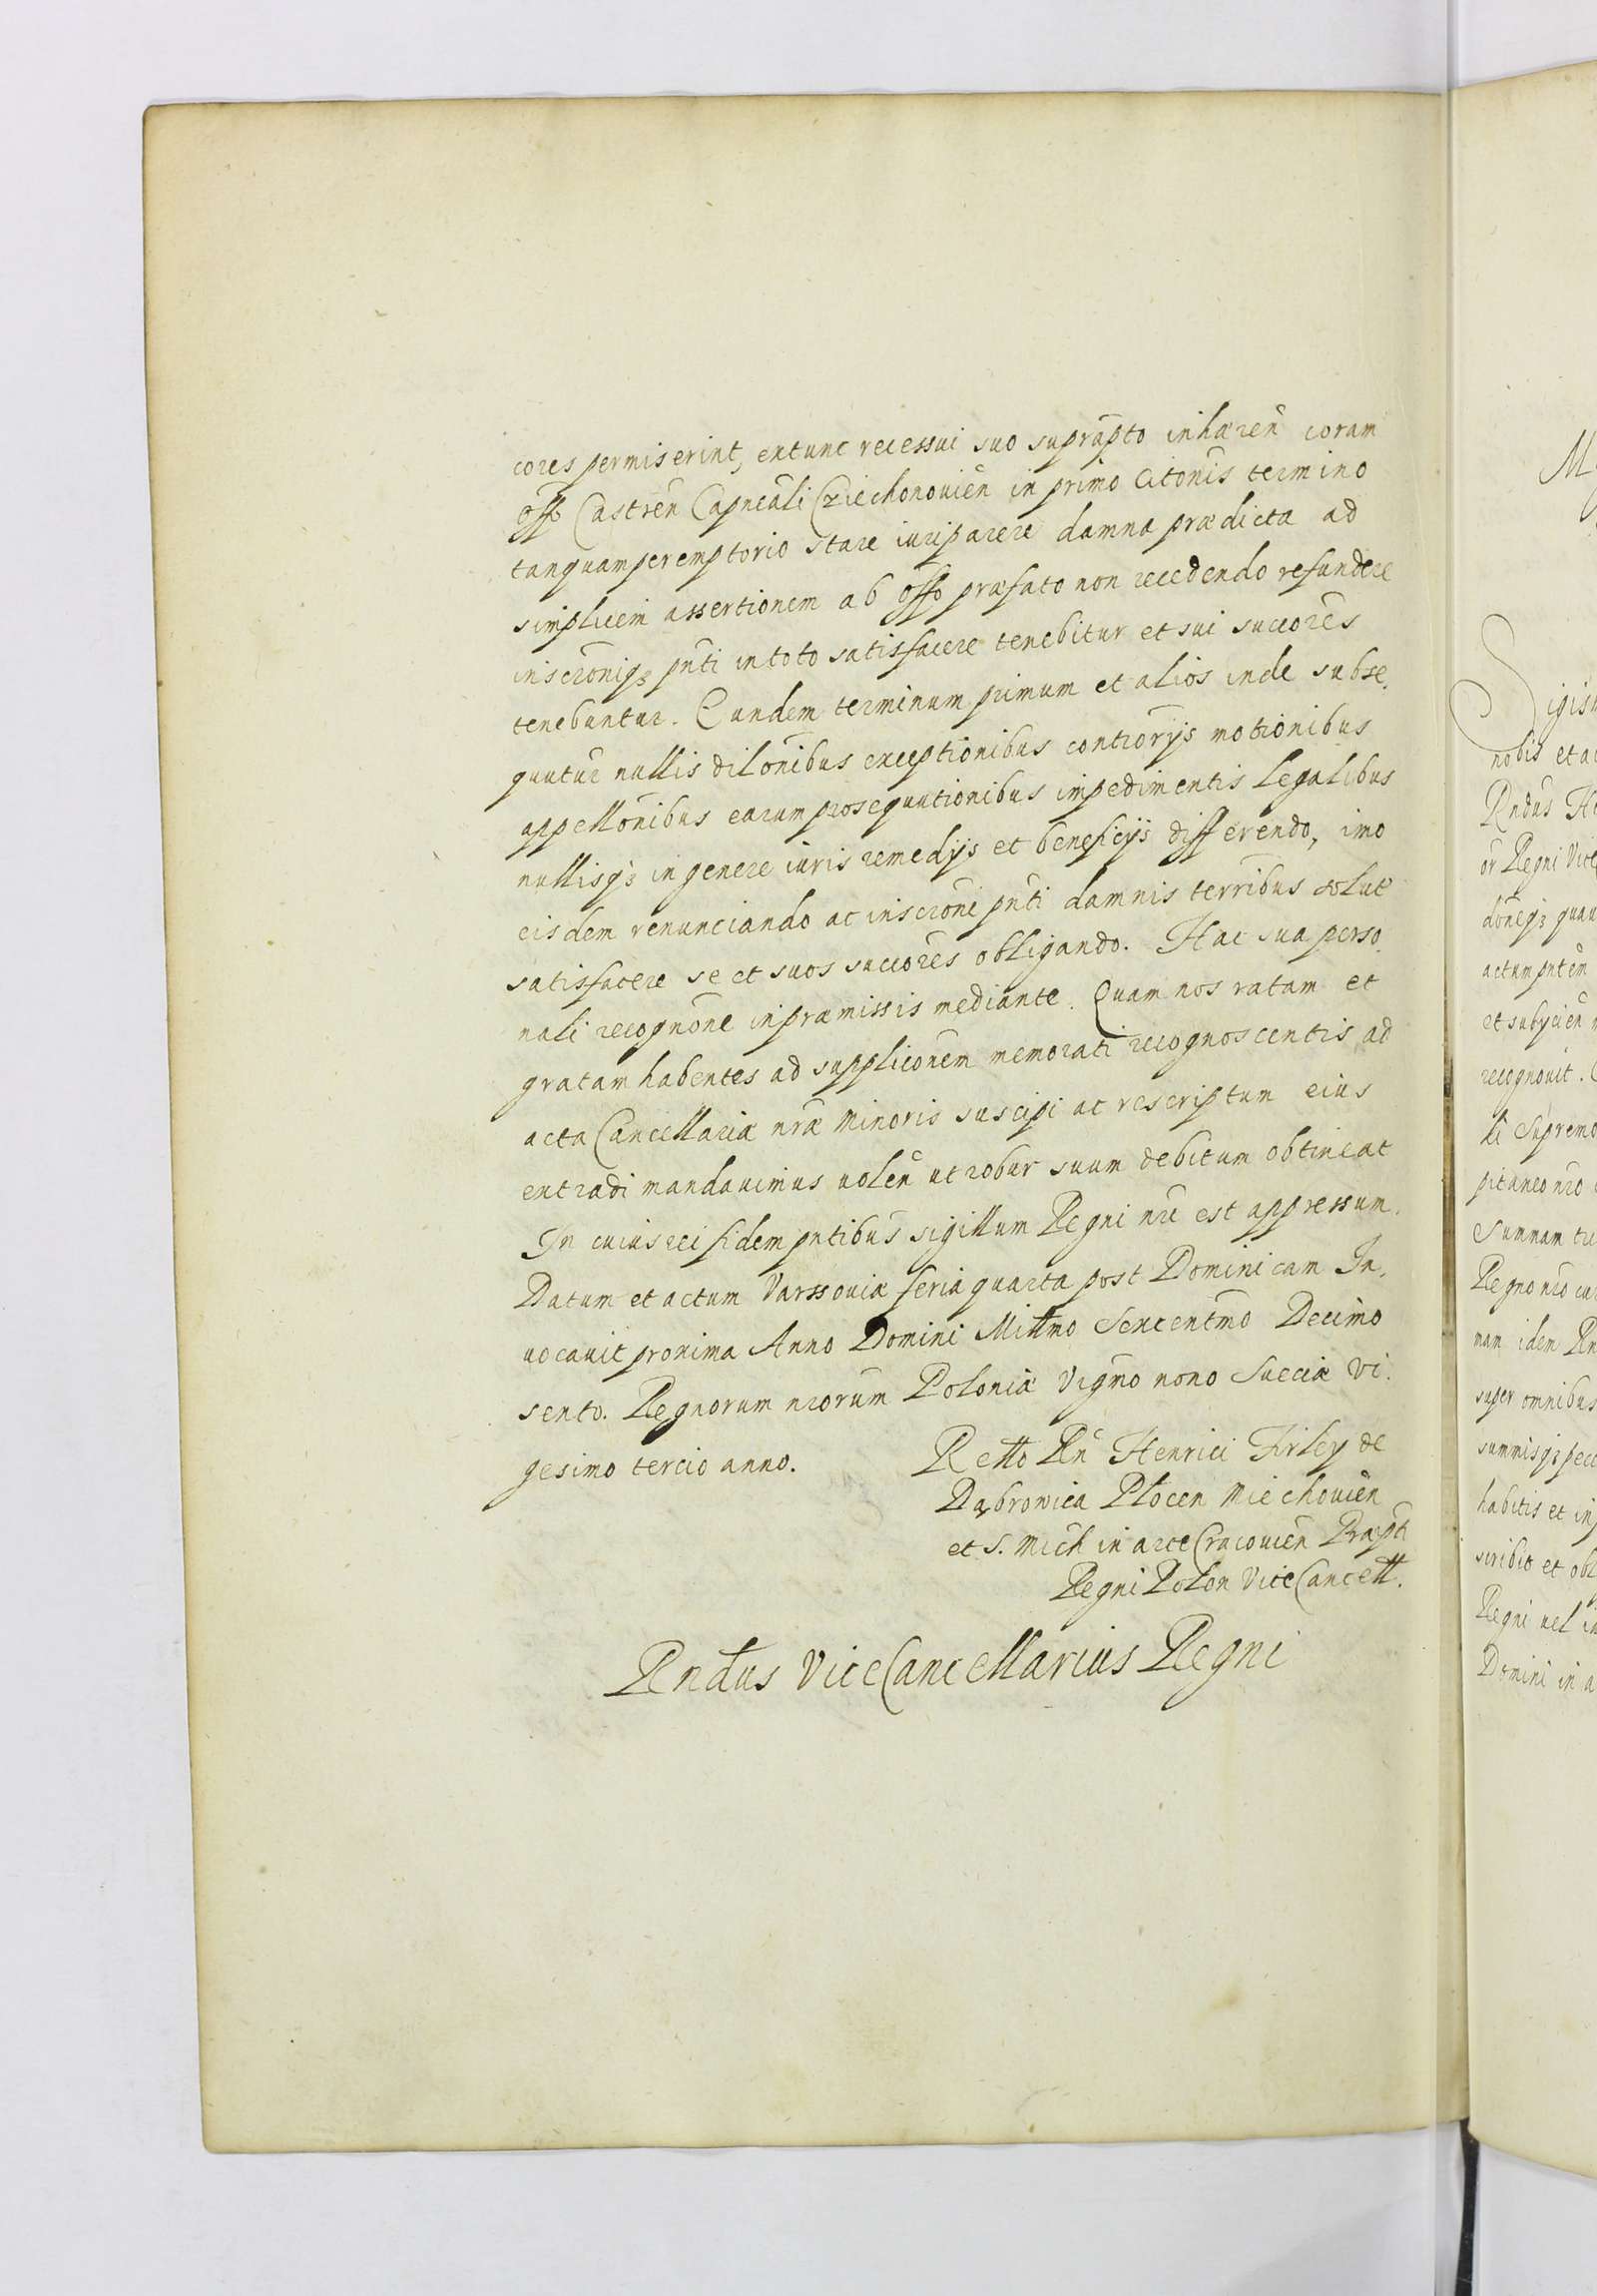 cores permiserint, extunc recessui suo suprapto inhæren̄ coram
offo Castren̄ Capneāli Cziechonouien̄ in primo Citonis termino
tanquam peremptorio stare iuri parere damna prædicta ad
simplicem assertionem ab offo præfato non recedendo refundere
inscroniq3 pn̄ti in toto satisfacere tenebitur et sui succores
tenebuntur. Eundem terminum primum et alios inde subse
quutur nullis dilonibus exceptionibus contiorijs motionibus
appellonibus earum prosequutionibus impedimentis legalibus
nullisq3 in genere iuris remedijs et beneficijs differendo, imo
eisdem renunciando ac inscroni pn̄ti damnis terribus solut
satisfacere se et suos succores obligando. Hac sua perso
nali recognone in præmissis mediante. Quam nos ratam et
gratam habentes ad supplicōnem memorati recognoscentis ad
acta Cancellariæ nr̄æ Minoris suscipi ac rescriptum eius
extradi mandauimus uolen̄ ut robur suum debitum obtineat
In cuius rei fidem pn̄tibus sigillum Regni nr̄i est appressum.
Datum et actum Varssouiæ feria quarta post Dominicam In,
uocauit proxima Anno Domini Millmo Sexcentmo Decimo
sexto. Regnorum nrorum Poloniæ Vigmo nono Sueciæ vi.
gesimo tercio anno.
Retto Rn̄ Henrici Firley de
Dąbrowica Plocen Miechouien̄
et S. Mich in arce Cracouien̄ Præpti
Regni Polon ViceCancell.
Rndus ViceCancellarius Regni
M
Sigism
nobis et ac
Rndus He
or Regni Vice
doneq3 quam
actum pntem
et subijcien
recognouit.
li Supremo
pitaneo nro
Summam
Regno nro
nam idem Rn
super omnibus
summisq3 pecc
habitis et in
Regni uel in
Domini in a